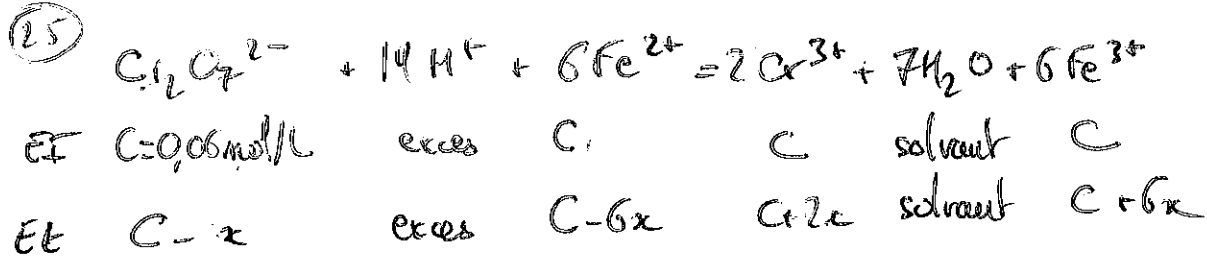 25
Cr₂O₇²⁻ + 14H⁺ + 6Fe²⁺ = 2Cr³⁺ + 7H₂O + 6Fe³⁺
EI C=0,06mol/L exces C C solvant C
Et C-x exces C-6x C+2x solvant C+6x